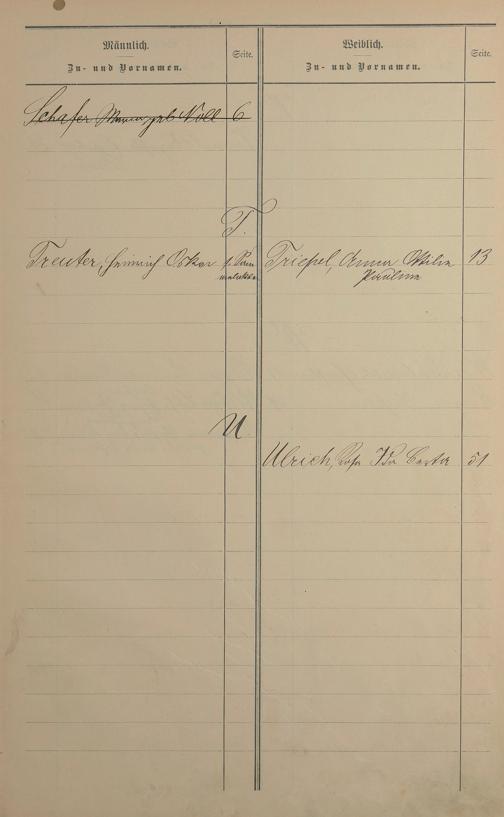 Männlich.
Zu- und Vornamen.
Seite.
Weiblich.
Zu- und Vornamen.
Seite.
Schafer geb Noll 6
T.
Treuter, Heinrich Oskar
Triepel, Anna Ottilie 13
Pauline
U
Ulrich, Rosa Ida Berta 51